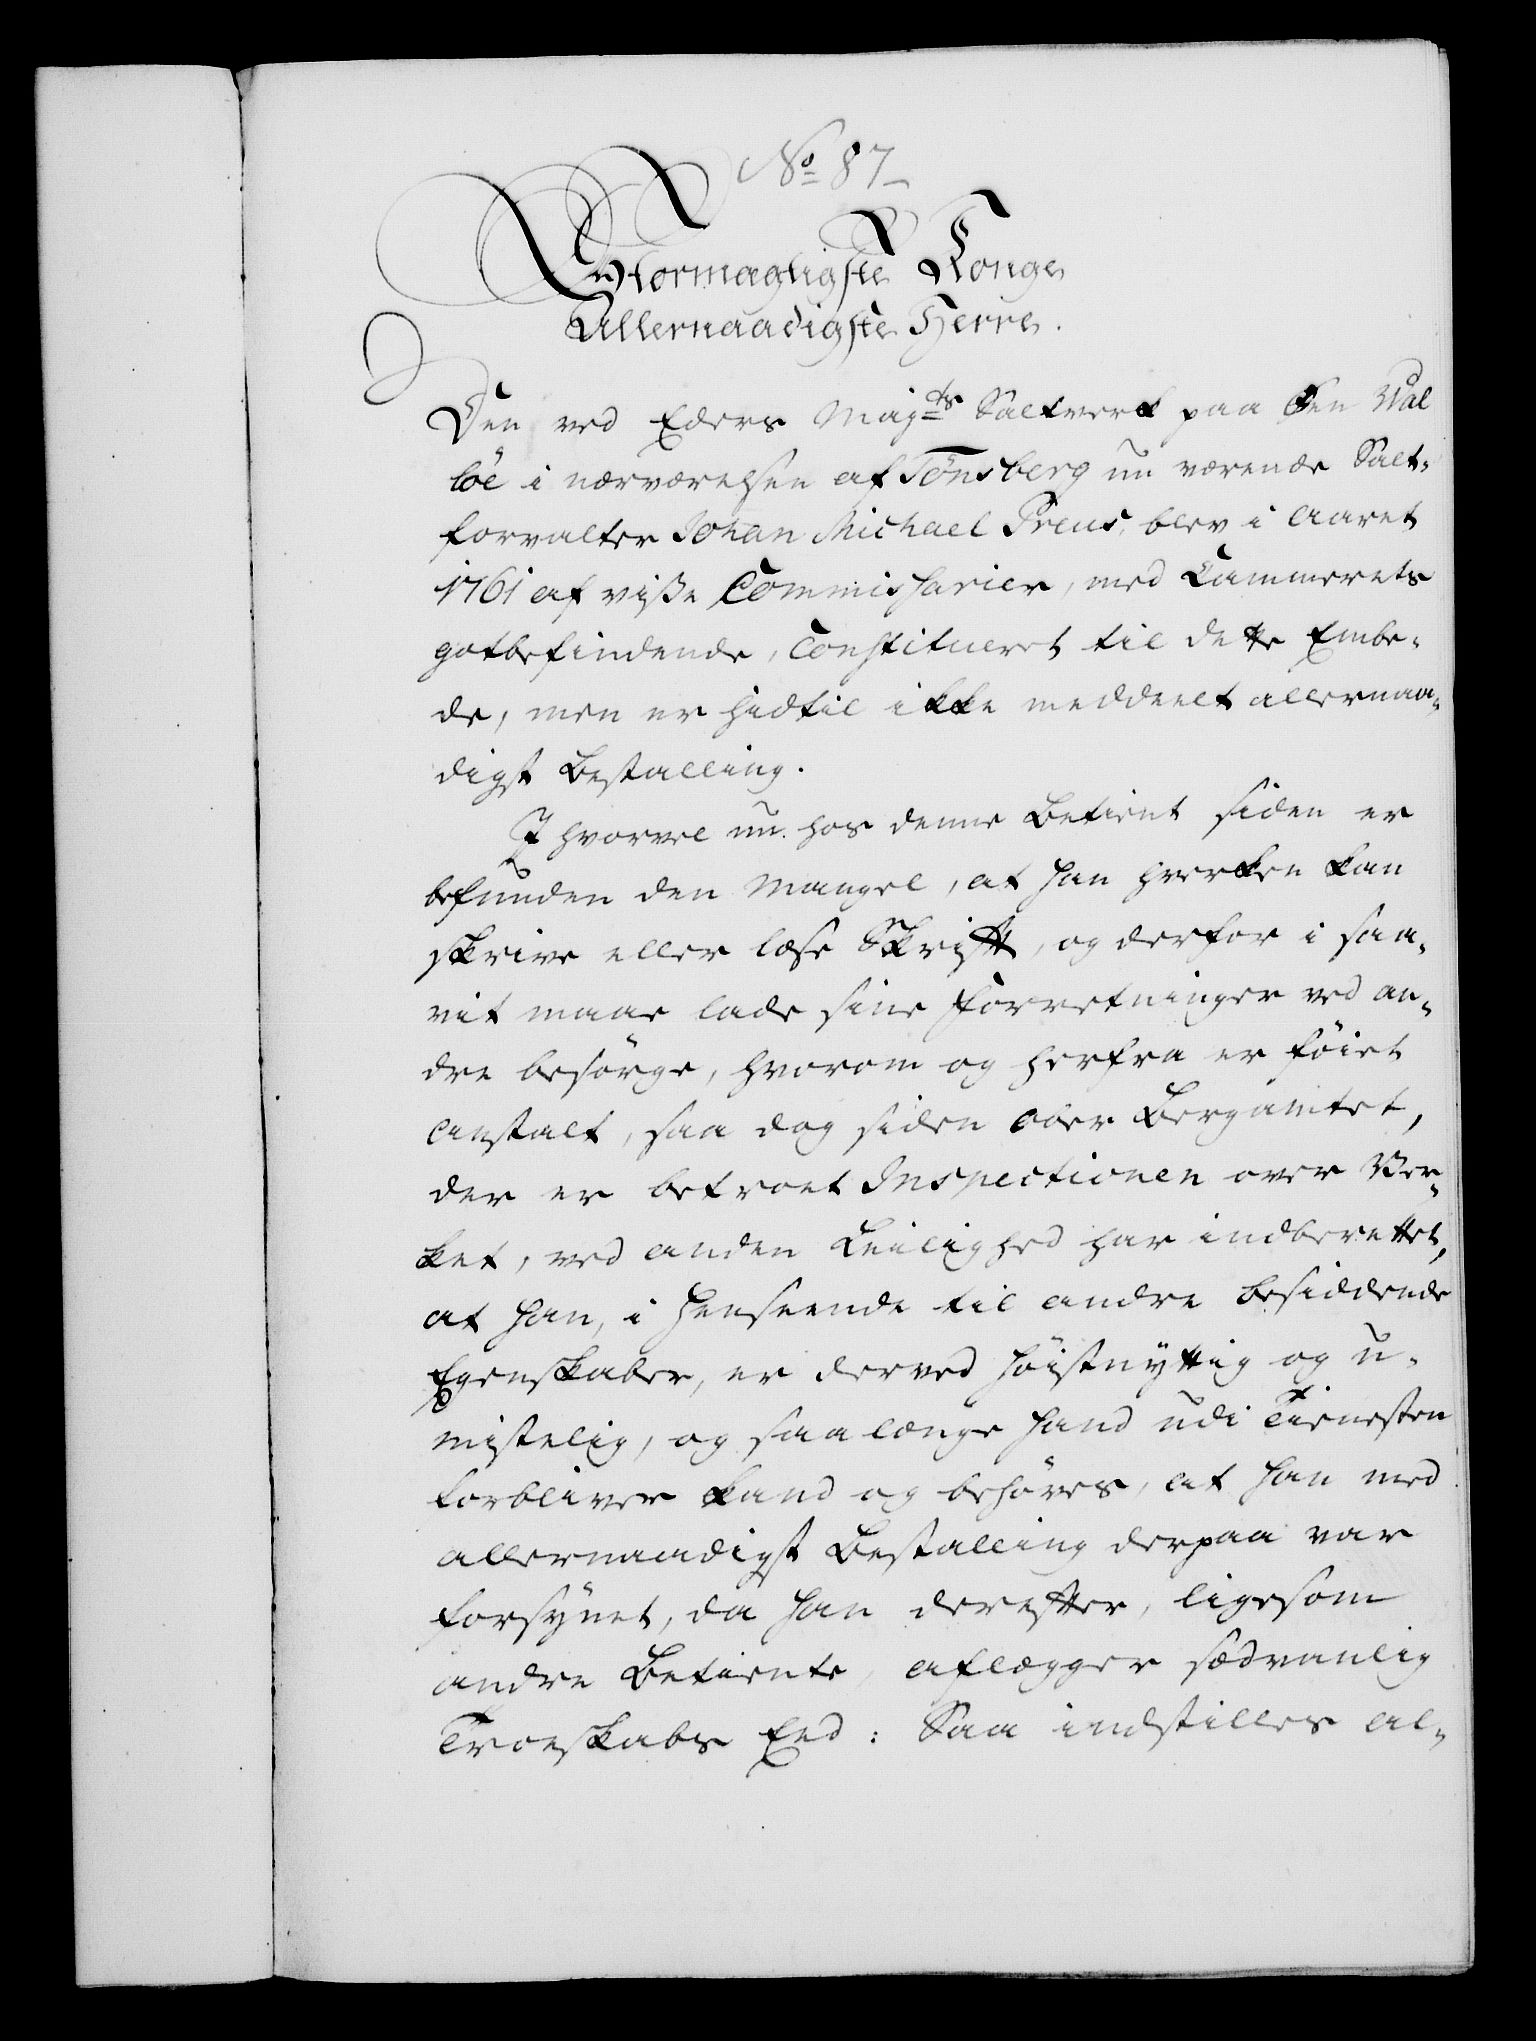 No 87
Stormægtigste Konge
Allernaadigste Herre.
Den ved Eders Majts Saltverk paa Øen Val
löe i nærværelsen af Tönsberg nu værende Salt-
forvalter Johan Michael Preus, blev i Aaret
1761 af visse Commissarier, med Kammerets
gotbefindende, Constitueret til dette Embe-
de, men er hidtil ikke meddeelt allernaa-
digst Bestalling.
I hvorvel nu hos denne Betient siden er
befunden den Mangel, at han hverken kan
skrive eller læse Skrift, og derfor i saa-
vit maae lade sine Forretninger ved an-
dre besörge, hvorom og herfra er föiet
Anstalt, saa dog siden Ober Bergamtet,
der er betroet Inspectionen over Ver-
ket, ved anden Leilighed har indberettet,
at han, i Henseende til andre besiddende
Egenskaber, er derved höistnyttig og u-
mistelig, og saa længe hand udi Tienesten
forbliver kand og behöves, at han med
allernaadigst Bestalling derpaa var
forsÿnet, da han derefter, ligesom
andre Betiente, aflægger sædvanlig
Troeskabs Eed: Saa indstilles al-